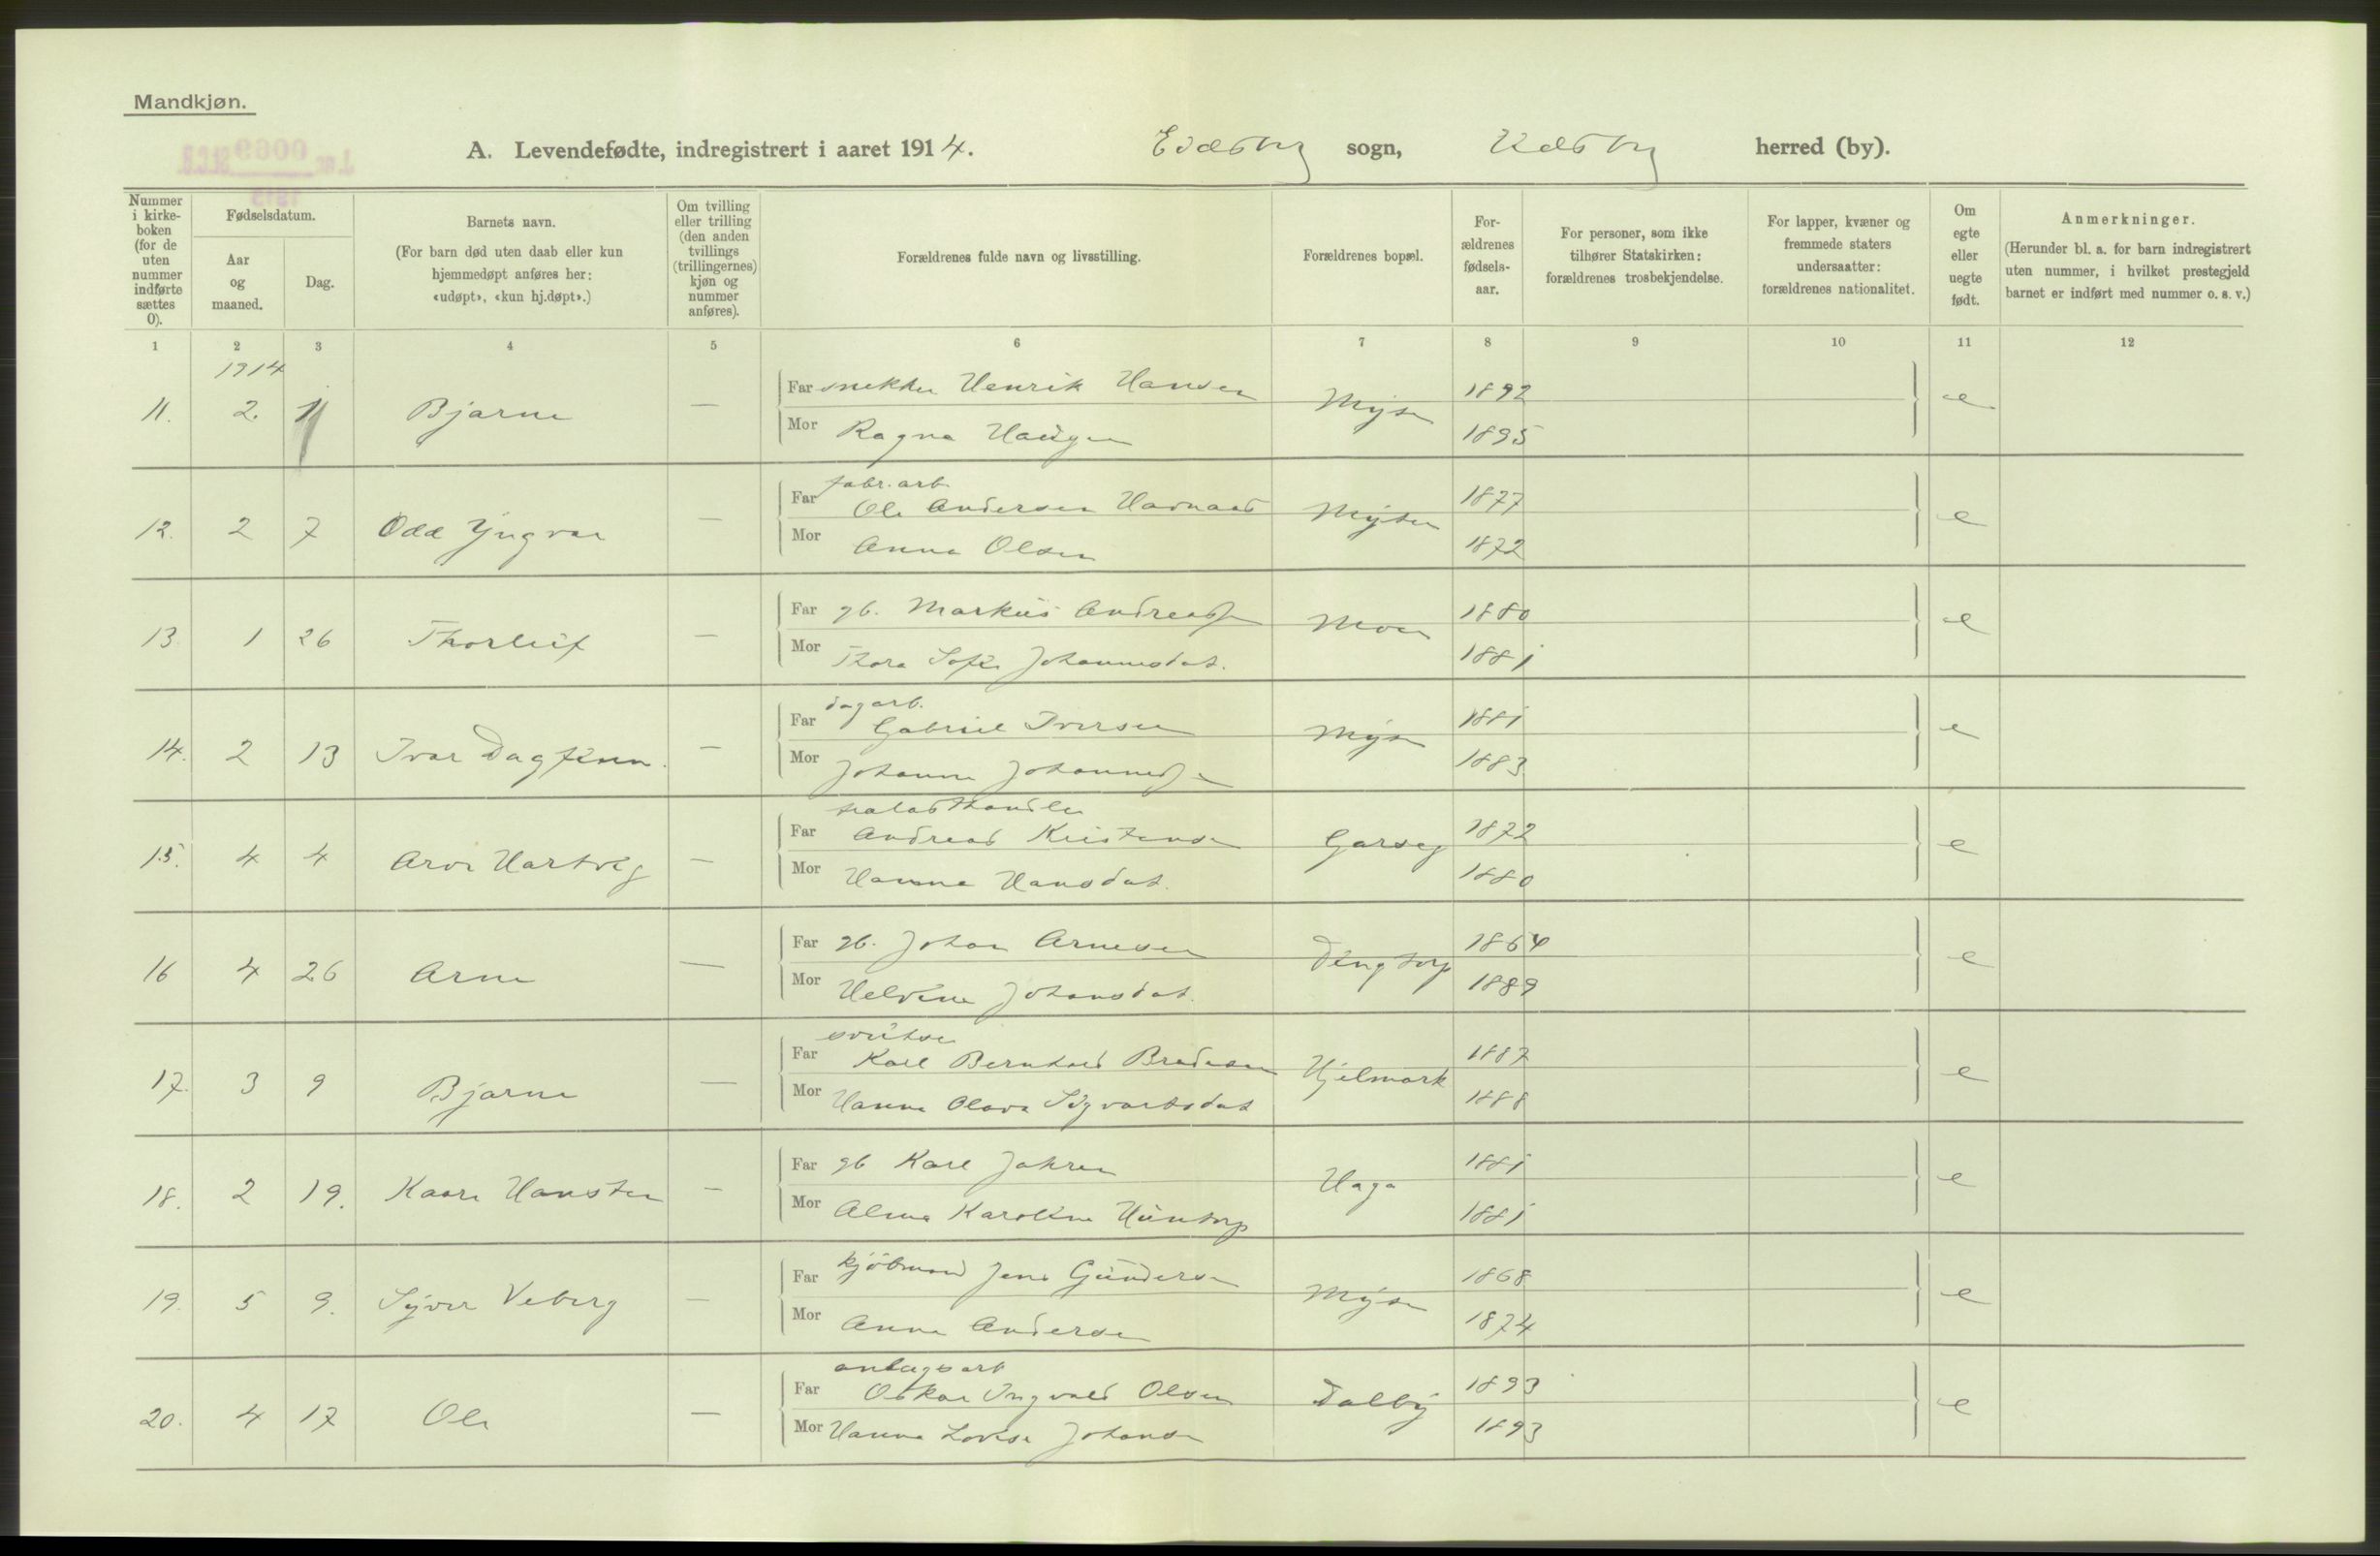 Mandkjøn.
A. Levendefødte, indregistrert i aaret 1914. Eidsberg sogn, Eidsberg herred (by).
Nummer i kirkeboken (for de uten nummer indførte sættes 0).
Fødselsdatum.
Aar og maaned.
Dag.
Barnets navn.
(For barn død uten daab eller kun hjemmedøpt anføres her: «udøpt», «kun hj.døpt».)
Om tvilling eller trilling (den anden tvillings (trillingernes) kjøn og nummer anføres).
Forældrenes fulde navn og livsstilling.
Forældrenes bopæl.
Forældrenes fødselsaar.
For personer, som ikke tilhører Statskirken: forældrenes trosbekjendelse.
For lapper, kvæner og fremmede staters undersaatter: forældrenes nationalitet.
Om egte eller uegte født.
Anmerkninger.
(Herunder bl. a. for barn indregistrert uten nummer, i hvilket prestegjeld barnet er indført med nummer o. s. v.)
1 2 3 4 5 6 7 8 9 10 11 12
1914
11. 2. 11 Bjarne — Far snekker Henrik Hansen Mysen 1892 e
Mor Ragna Haugen 1895
12. 2 7 Odd Yngvar — Far fabr.arb. Ole Andersen Mysen 1877 e
Mor Anna Olsen 1872
13. 1 26 Thorleif — Far gb. Markus Andreassen Moen 1880 e
Mor Thora Sofie Johannesdat. 1881
14. 2 13 Ivar Dagfinn. — Far dagarb. Gabriel Iversen Mysen 1881 e
Mor Johanne Johannessen 1883
15. 4 4 Arve Hartvig — Far Andreas Kristensen Garseg 1872 e
Mor Hanna Hansdat. 1880
16 4 26 Arne — Far gb. Johan Arnesen 1864 e
Mor Helvine Johansdat. 1889
17. 3 9 Bjarne — Far Karl Bernhard Hjelmark 1887 e
Mor Hanna Olava Sigvartsdat 1888
18. 2 19. Kaare Hansten — Far gb Karl Jahren Haga 1881 e
Mor Alma Karoline Huntorp 1881
19. 5 9. Syver Veberg — Far kjøbmand Jens Gundersen Mysen 1868 e
Mor Anna Andersen 1874
20. 4 17 Ole — Far anlægsarb Oskar Ingvald Olsen Dalby 1893 e
Mor Hanna Lovise Johansen 1893